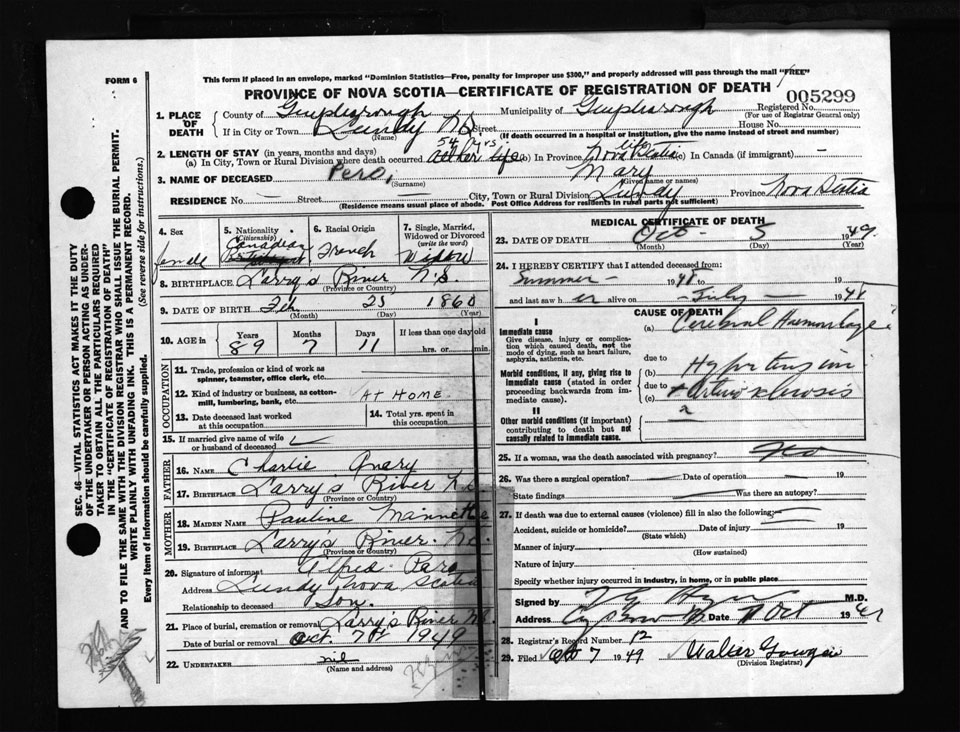 FORM 6
This form if placed in an envelope, marked "Dominion Statistics—Free, penalty for improper use $300," and properly addressed will pass through the mail "FREE"
PROVINCE OF NOVA SCOTIA—CERTIFICATE OF REGISTRATION OF DEATH
005299
1. PLACE OF DEATH
County of Guysborough Municipality of Guysborough Registered No.
(For use of Registrar General only)
If in City or Town Lundy N.S. Street House No.
(Name) (If death occurred in a hospital or institution, give the name instead of street and number)
2. LENGTH OF STAY (in years, months and days)
54 yrs.
(a) In City, Town or Rural Division where death occurred (b) In Province life Nova Scotia (c) In Canada (if immigrant) —
3. NAME OF DECEASED Pero, Mary
(Surname) (Given name or names)
RESIDENCE No. — Street City, Town or Rural Division Lundy Province Nova Scotia
(Residence means usual place of abode. Post Office Address for residents in rural parts not sufficient)
4. Sex female
5. Nationality (Citizenship) Canadian
6. Racial Origin French
7. Single, Married, Widowed or Divorced (write the word) Widow
8. BIRTHPLACE Larry's River N.S.
(Province or Country)
9. DATE OF BIRTH Feb 23 1860
(Month) (Day) (Year)
10. AGE in Years 89 Months 7 Days 11 If less than one day old
hrs. or min.
OCCUPATION
11. Trade, profession or kind of work as spinner, teamster, office clerk, etc.
12. Kind of industry or business, as cotton-mill, lumbering, bank, etc. AT HOME
13. Date deceased last worked at this occupation
14. Total yrs. spent in this occupation
15. If married give name of wife or husband of deceased
FATHER
16. NAME Charlie Avery
17. BIRTHPLACE Larrys River N.S.
(Province or Country)
MOTHER
18. MAIDEN NAME Pauline Mannette
19. BIRTHPLACE Larrys River N.S.
(Province or Country)
20. Signature of informant Alfred Pero
Address Lundy Nova Scotia
Relationship to deceased Son.
21. Place of burial, cremation or removal Larry's River N.S.
Date of burial or removal Oct. 7th 1949
22. UNDERTAKER nil
(Name and address)
MEDICAL CERTIFICATE OF DEATH
23. DATE OF DEATH Oct- 5 1949.
(Month) (Day) (Year)
24. I HEREBY CERTIFY that I attended deceased from:
Summer 1948 to 19
and last saw her alive on — July — 1948
CAUSE OF DEATH
I
Immediate cause
Give disease, injury or complication which caused death, not the mode of dying, such as heart failure, asphyxia, asthenia, etc.
(a) Cerebral Haemorrhage ?
due to
Morbid conditions, if any, giving rise to immediate cause (stated in order proceeding backwards from immediate cause).
(b) Hypertension
due to
(c) + Arteriosclerosis
II
Other morbid conditions (if important) contributing to death but not causally related to immediate cause.
25. If a woman, was the death associated with pregnancy? No
26. Was there a surgical operation? — Date of operation — 19
State findings Was there an autopsy?
27. If death was due to external causes (violence) fill in also the following:
Accident, suicide or homicide? Date of injury 19
(State which)
Manner of injury
(How sustained)
Nature of injury
Specify whether injury occurred in industry, in home, or in public place
Signed by M.D.
Address Date 7 Oct 1949
28. Registrar's Record Number 12
29. Filed Oct 7 1949 Walter
(Division Registrar)
SEC. 46—VITAL STATISTICS ACT MAKES IT THE DUTY OF THE UNDERTAKER OR PERSON ACTING AS UNDERTAKER TO OBTAIN ALL THE PARTICULARS REQUIRED IN THE "CERTIFICATE OF REGISTRATION OF DEATH" AND TO FILE THE SAME WITH THE DIVISION REGISTRAR WHO SHALL ISSUE THE BURIAL PERMIT.
WRITE PLAINLY WITH UNFADING INK. THIS IS A PERMANENT RECORD.
Every item of information should be carefully supplied. (See reverse side for instructions.)